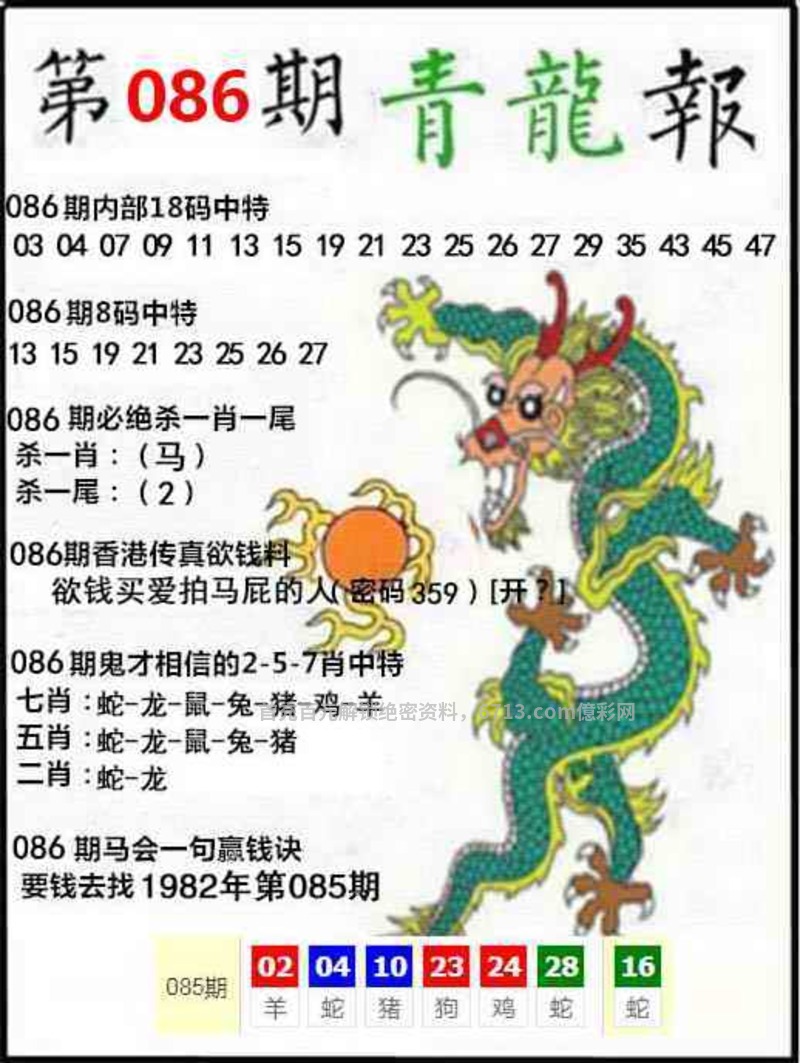 第086期青龍報
086期内部18码中特
03 04 07 09 11 13 15 19 21 23 25 26 27 29 35 43 45 47
086期8码中特
13 15 19 21 23 25 26 27
086期必绝杀一肖一尾
杀一肖：（马）
杀一尾：（2）
086期香港传真欲钱料
欲钱买爱拍马屁的人(密码359)[开？]
086期鬼才相信的2-5-7肖中特
七肖：蛇-龙-鼠-兔-猪-鸡-羊
首充百元解锁绝密资料，713.com億彩网
五肖：蛇-龙-鼠-兔-猪
二肖：蛇-龙
086期马会一句赢钱诀
要钱去找1982年第085期
085期 02 04 10 23 24 28 16
羊 蛇 猪 狗 鸡 蛇 蛇